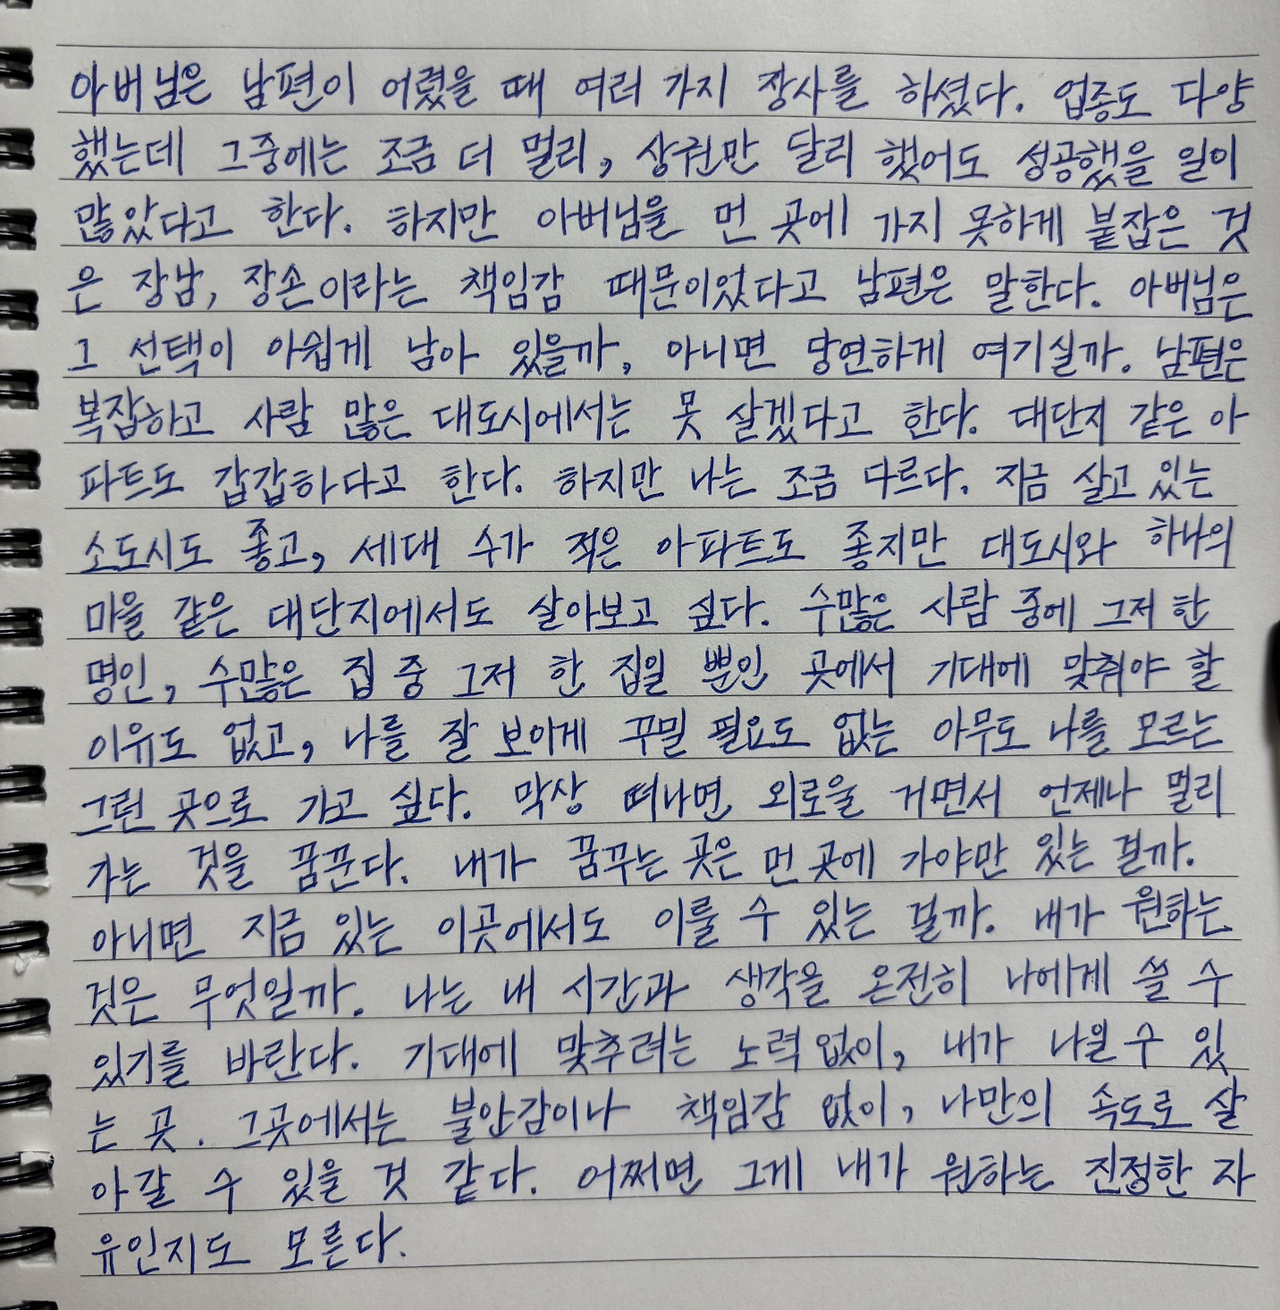 아버님은 남편이 어렸을 때 여러 가지 장사를 하셨다. 업종도 다양
했는데 그중에는 조금 더 멀리, 상권만 달리 했어도 성공했을 일이
많았다고 한다. 하지만 아버님을 먼 곳에 가지 못하게 붙잡은 것
은 장남, 장손이라는 책임감 때문이었다고 남편은 말한다. 아버님은
그 선택이 아쉽게 남아 있을까, 아니면 당연하게 여기실까. 남편은
복잡하고 사람 많은 대도시에서는 못 살겠다고 한다. 대단지 같은 아
파트도 갑갑하다고 한다. 하지만 나는 조금 다르다. 지금 살고 있는
소도시도 좋고, 세대 수가 적은 아파트도 좋지만 대도시와 하나의
마을 같은 대단지에서도 살아보고 싶다. 수많은 사람 중에 그저 한
명인, 수많은 집 중 그저 한 집일 뿐인 곳에서 기대에 맞춰야 할
이유도 없고, 나를 잘 보이게 꾸밀 필요도 없는 아무도 나를 모르는
그런 곳으로 가고 싶다. 막상 떠나면 외로울 거면서 언제나 멀리
가는 것을 꿈꾼다. 내가 꿈꾸는 곳은 먼 곳에 가야만 있는 걸까.
아니면 지금 있는 이곳에서도 이룰 수 있는 걸까. 내가 원하는
것은 무엇일까. 나는 내 시간과 생각을 온전히 나에게 쓸 수
있기를 바란다. 기대에 맞추려는 노력 없이, 내가 나일 수 있
는 곳. 그곳에서는 불안감이나 책임감 없이, 나만의 속도로 살
아갈 수 있을 것 같다. 어쩌면 그게 내가 원하는 진정한 자
유인지도 모른다.